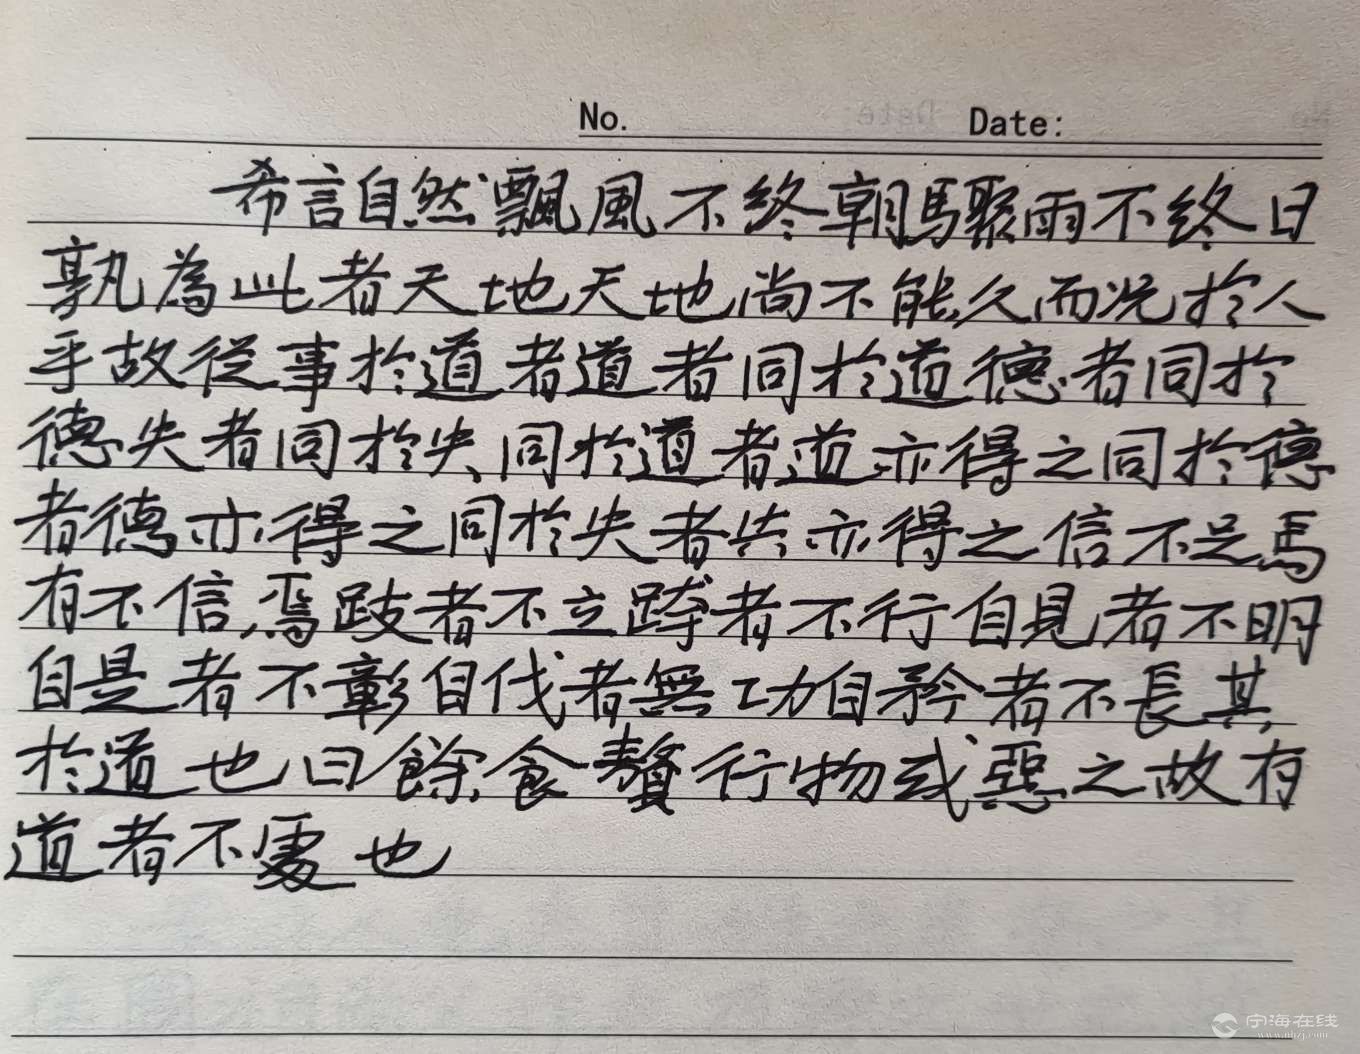 No. Date:
希言自然飄風不終朝驟雨不終日
孰為此者天地天地尚不能久而況於人
乎故從事於道者道者同於道德者同於
德失者同於失同於道者道亦得之同於德
者德亦得之同於失者失亦得之信不足焉
有不信焉跂者不立跨者不行自見者不明
自是者不彰自伐者無功自矜者不長其
於道也曰餘食贅行物或惡之故有
道者不處也
宁海在线
www.nhzj.com